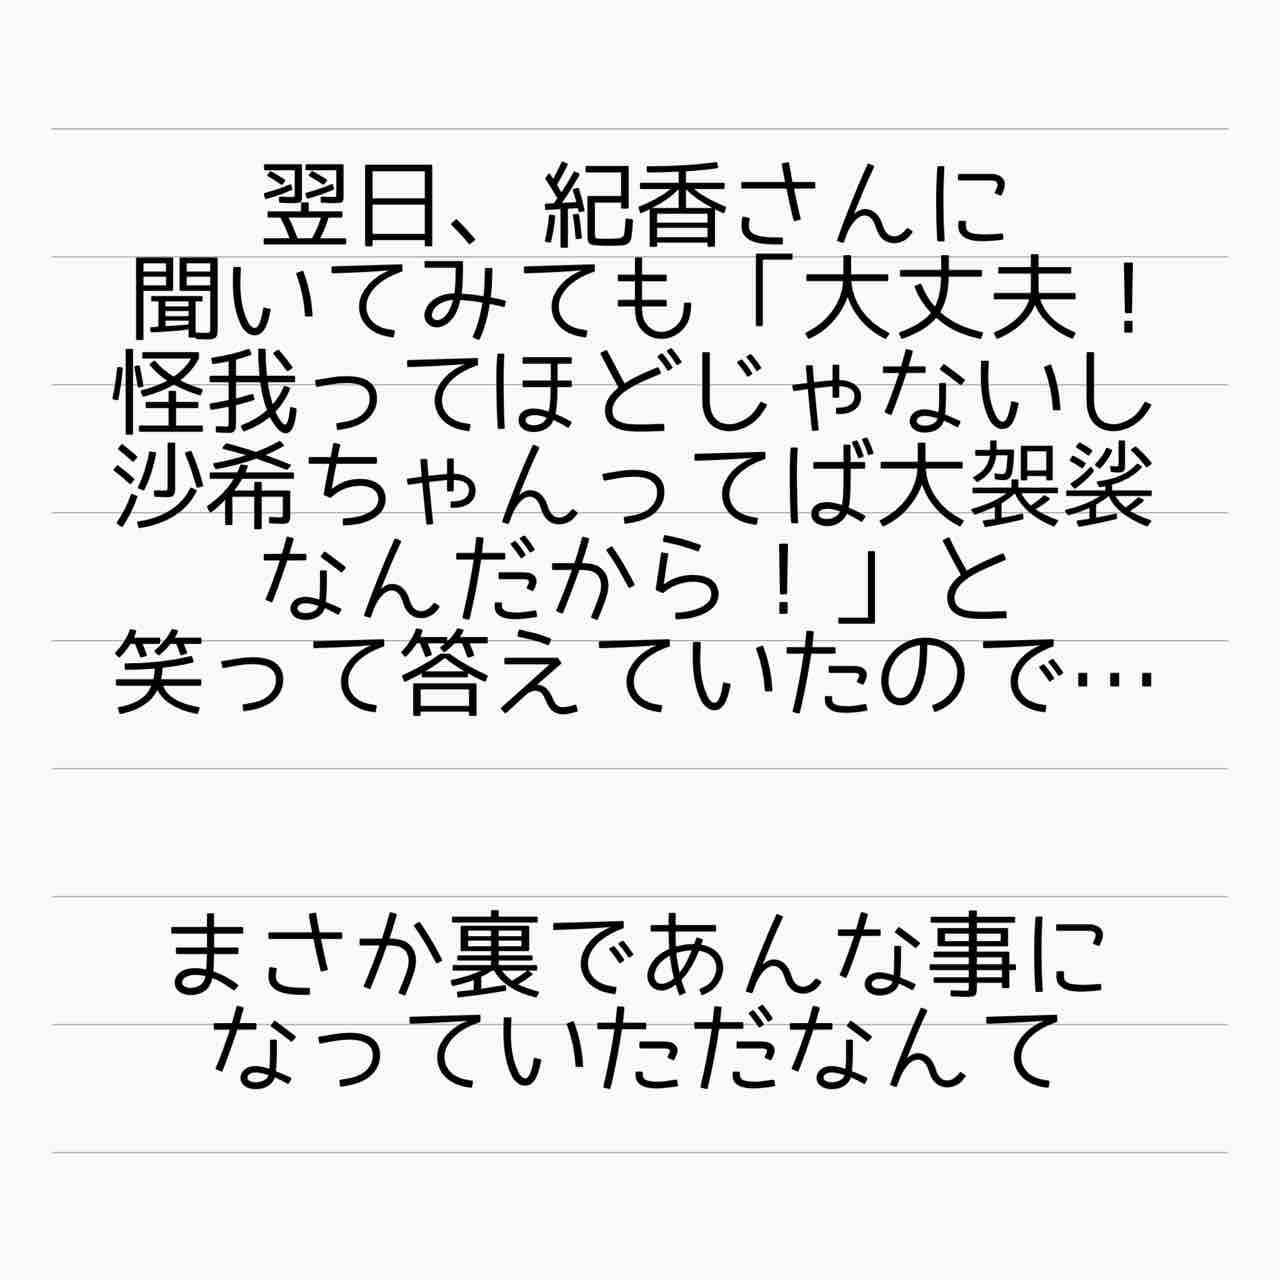 翌日、紀香さんに
聞いてみても「大丈夫！
怪我ってほどじゃないし
沙希ちゃんってば大袈裟
なんだから！」と
笑って答えていたので…
まさか裏であんな事に
なっていただなんて